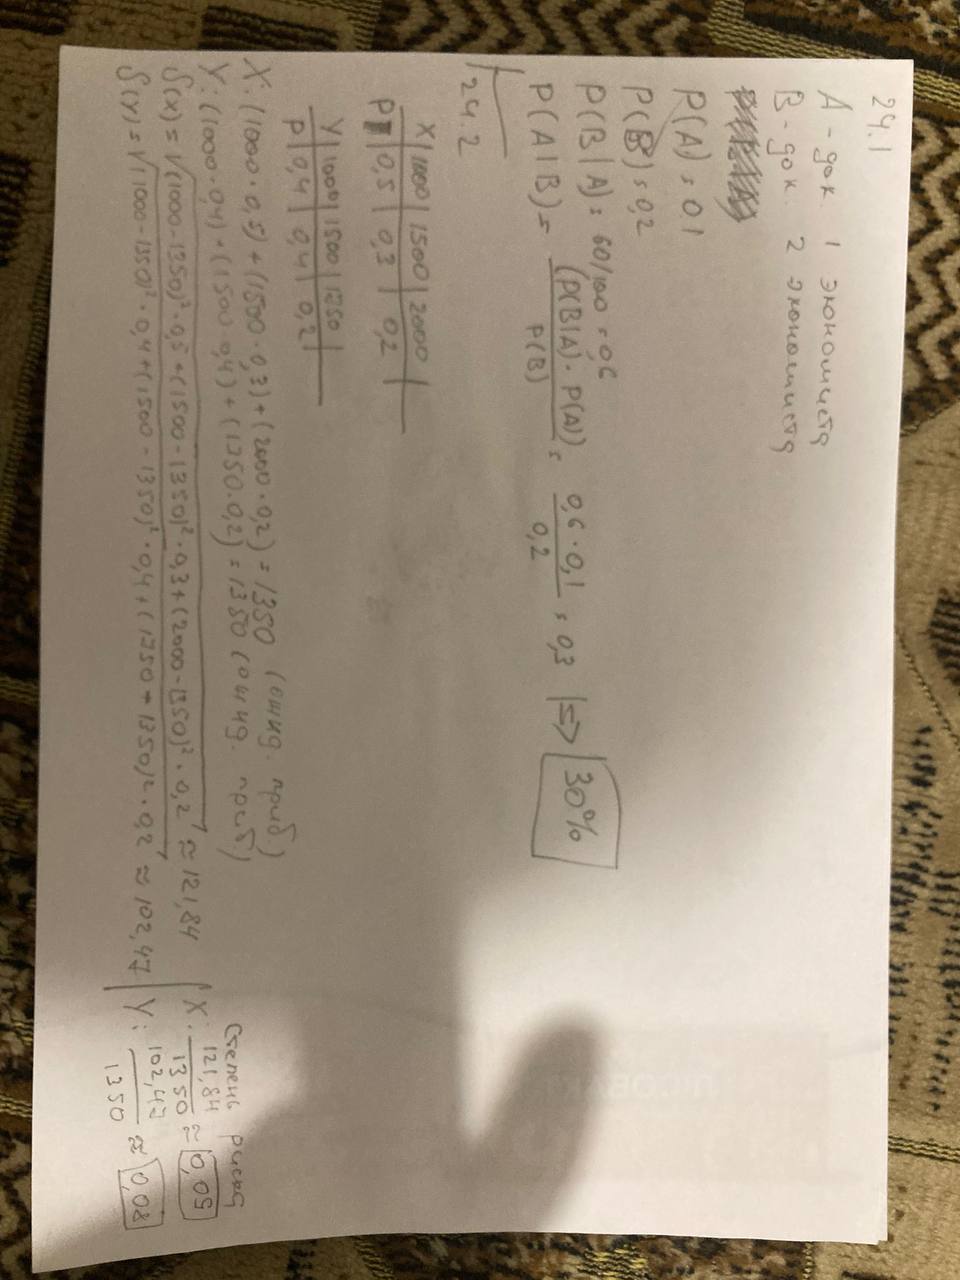 24.1
A - док 1 экономиста
B - док. 2 экономиста
P(A) = 0.1
P(B) = 0,2
P(B|A) = 60/100 = 0,6
P(A|B) = (P(B|A) · P(A)) / P(B) = 0,6 · 0,1 / 0,2 = 0,3 |=> 30%
24.2
X | 1000 | 1500 | 2000 |
P | 0,5 | 0,3 | 0,2
Y | 1000 | 1500 | 1750 |
P | 0,4 | 0,4 | 0,2 |
X: (1000 · 0,5) + (1500 · 0,3) + (2000 · 0,2) = 1350 (ожид. приб)
Y: (1000 · 0,4) + (1500 · 0,4) + (1750 · 0,2) = 1350 (ожид. приб)
Степень риска
δ(x) = √(1000 - 1350)² · 0,5 + (1500 - 1350)² · 0,3 + (2000 - 1350)² · 0,2 ≈ 121,84 | X: 121,84 / 1350 ≈ 0,09
δ(Y) = √(1000 - 1350)² · 0,4 + (1500 - 1350)² · 0,4 + (1750 - 1350)² · 0,2 ≈ 102,47 | Y: 102,47 / 1350 ≈ 0,08